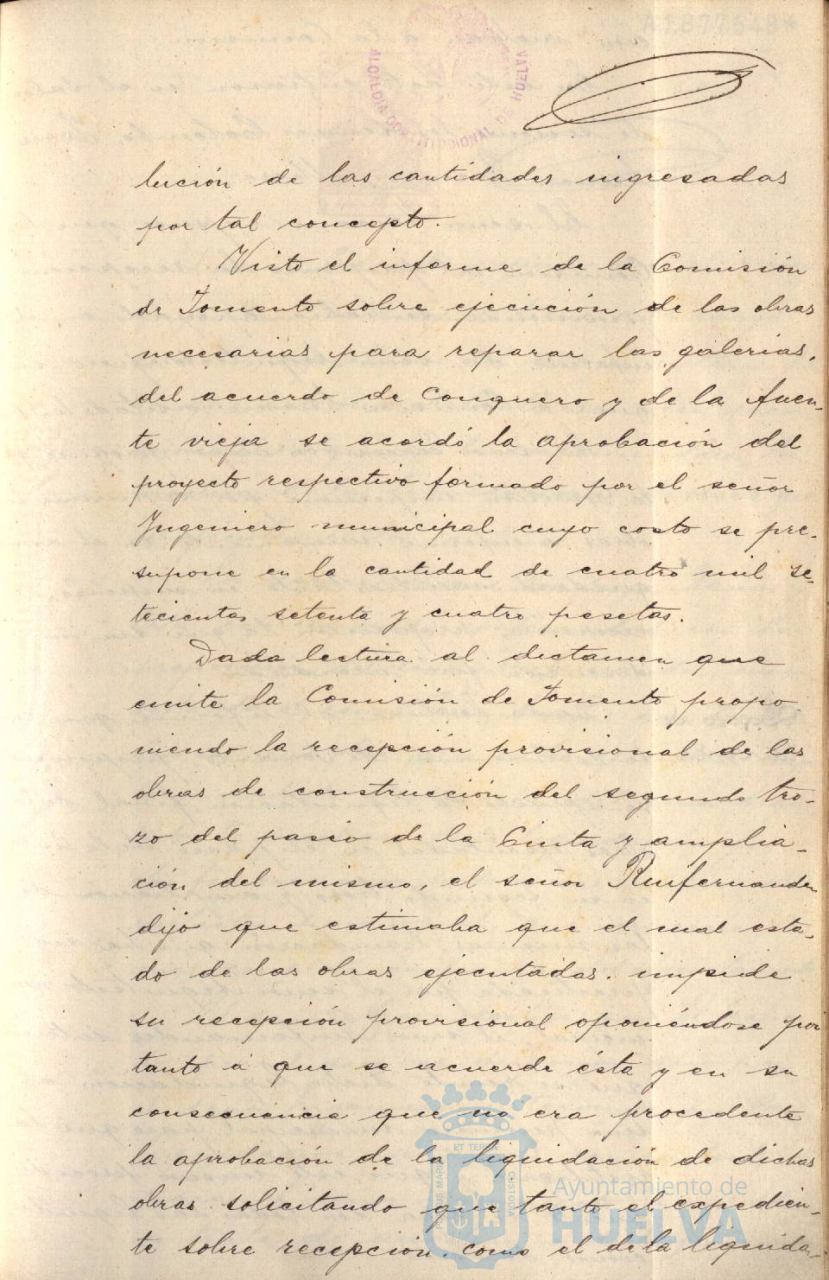 ALCALDIA CONSTITUCIONAL DE HUELVA
lución de las cantidades ingresadas
por tal concepto.
Visto el informe de la Comisión
de Fomento sobre ejecución de las obras
necesarias para reparar las galerias,
del acuerdo de Conquero y de la fuen-
te vieja se acordó la aprobación del
proyecto respectivo formado por el señor
Ingeniero municipal cuyo costo se pre-
supone en la cantidad de cuatro mil se-
tecientas setenta y cuatro pesetas.
Dada lectura al dictamen que
emite la Comisión de Fomento propo
niendo la recepción provisional de las
obras de construcción del segundo tro-
zo del paseo de la Cinta y amplia-
ción del mismo, el señor Ruifernandez
dijo que estimaba que el mal esta-
do de las obras ejecutadas. impide
su recepción provisional oponiéndose por
tanto a que se acuerde ésta y en su
consecuencia que no era procedente
la aprobación de la liquidación de dichas
obras solicitando que tanto el expedien-
te sobre recepción. como el de la liquida-
Ayuntamiento de
HUELVA